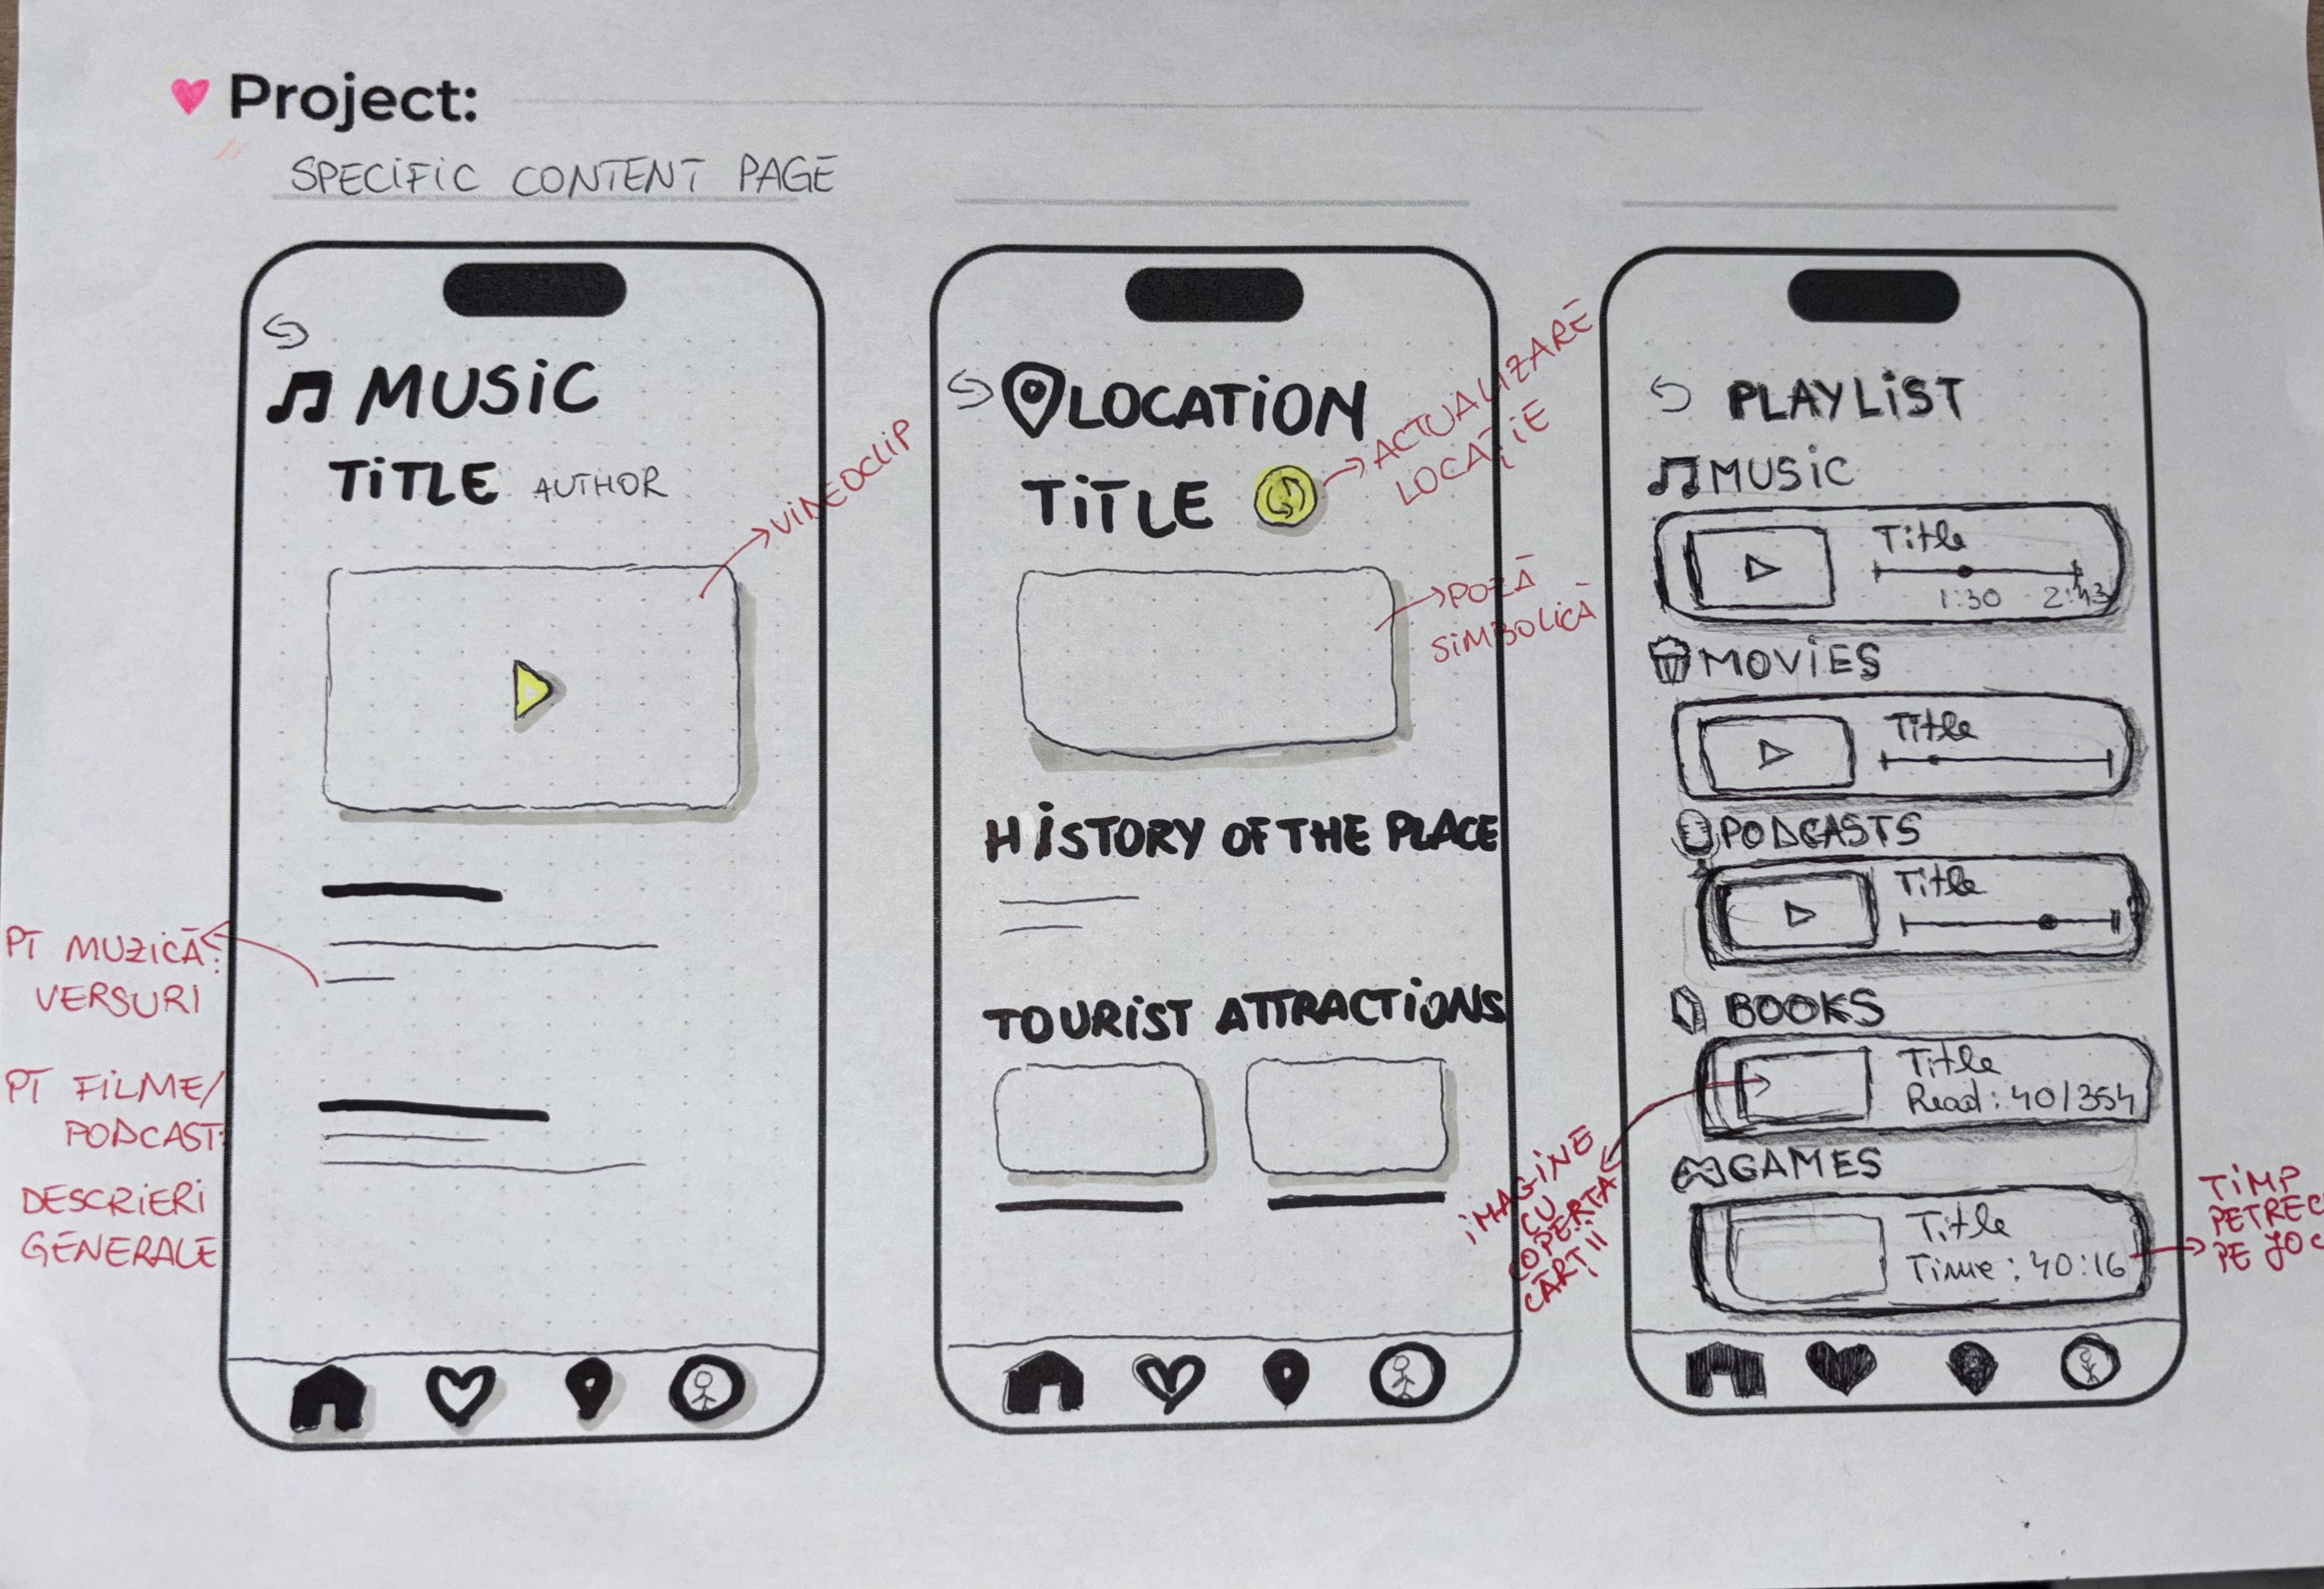 Project:
SPECIFIC CONTENT PAGE
MUSIC
TITLE AUTHOR
VIDEOCLIP
PT MUZICĂ:
VERSURI
PT FILME/
PODCAST:
DESCRIERI
GENERALE
LOCATION
TITLE
ACTUALIZARE
LOCAȚIE
POZĂ
SIMBOLICĂ
HISTORY OF THE PLACE
TOURIST ATTRACTIONS
PLAYLIST
MUSIC
Title
1:30 2:43
MOVIES
Title
PODCASTS
Title
BOOKS
Title
Read: 40/354
IMAGINE
CU
COPERTA
CĂRȚII
GAMES
Title
Time: 40:16
TIMP
PETREC
PE JOC